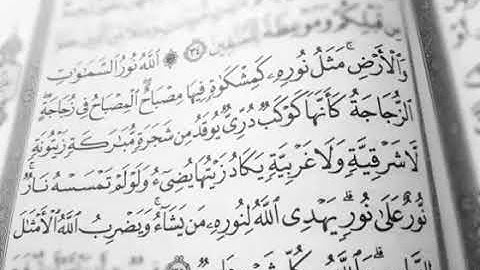 مِّن قَبْلِكُمْ وَمَوْعِظَةً لِّلْمُتَّقِينَ ﴿٣٤﴾ ۞ اللَّهُ نُورُ السَّمَاوَاتِ
وَالْأَرْضِ ۚ مَثَلُ نُورِهِ كَمِشْكَوٰةٍ فِيهَا مِصْبَاحٌ ۖ الْمِصْبَاحُ فِي زُجَاجَةٍ ۖ
الزُّجَاجَةُ كَأَنَّهَا كَوْكَبٌ دُرِّيٌّ يُوقَدُ مِن شَجَرَةٍ مُّبَٰرَكَةٍ زَيْتُونَةٍ
لَّا شَرْقِيَّةٍ وَلَا غَرْبِيَّةٍ يَكَادُ زَيْتُهَا يُضِيءُ وَلَوْ لَمْ تَمْسَسْهُ نَارٌ ۚ
نُّورٌ عَلَىٰ نُورٍ ۗ يَهْدِي اللَّهُ لِنُورِهِ مَن يَشَاءُ ۚ وَيَضْرِبُ اللَّهُ الْأَمْثَٰلَ